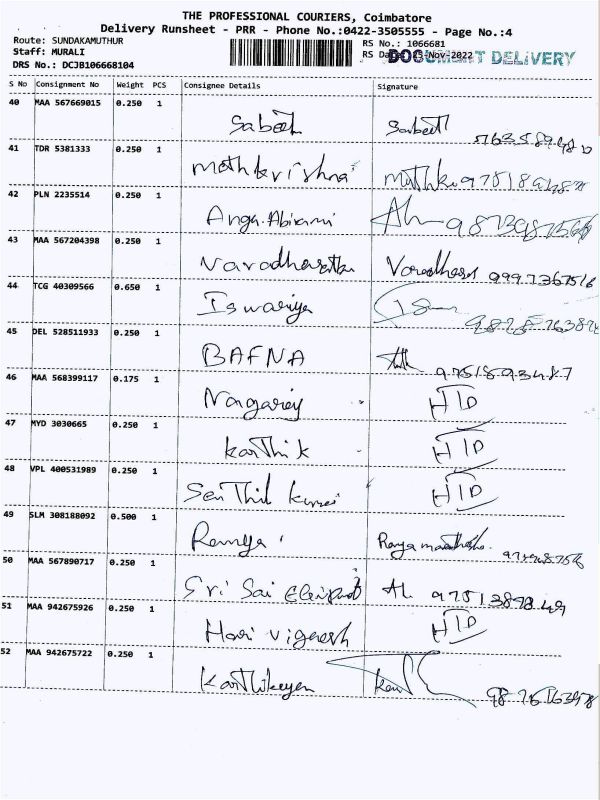 THE PROFESSIONAL COURIERS, Coimbatore
Delivery Runsheet - PRR - Phone No.:0422-3505555 - Page No.:4
Route: SUNDAKAMUTHUR
RS No.: 1066681
Staff: MURALI
RS Da 13-Nov-2022 DOCUMENT DELIVERY
DRS No.: DCJB106668104
S No Consignment No Weight PCS Consignee Details Signature
40 MAA 567669015 0.250 1
Sabeeth Sabeeth
41 TDR 5381333 0.250 1
Mathkrishna
42 PLN 2235514 0.250 1
Anga.Abirami
43 MAA 567204398 0.250 1
Varadharathu Varadharath 9997367516
44 TCG 40309566 0.650 1
Iswariya
45 DEL 528511933 0.250 1
BAFNA 9751893487
46 MAA 568399117 0.175 1
Nagaraj HID
47 MYD 3030665 0.250 1
karthik HID
48 VPL 400531989 0.250 1
Senthil kumar HID
49 SLM 308188092 0.500 1
Ramya
50 MAA 567890717 0.250 1
Sri Sai
51 MAA 942675926 0.250 1
Hari vignesh HID
52 MAA 942675722 0.250 1
Karthikeyan